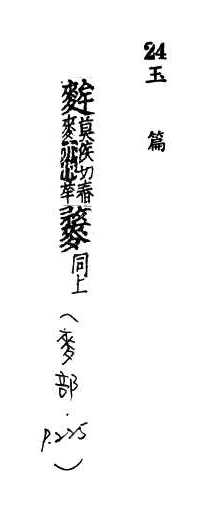 24 玉篇
麰莫侯切春
麥
同上(麥部.p.225)